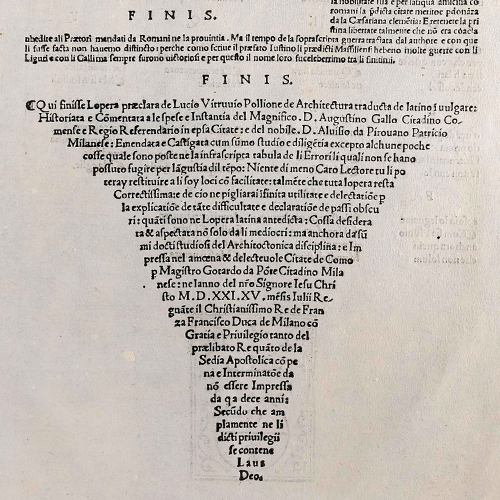 FINIS.
la nobilitate sua e per lantiqua amicitia cō
romani la p̄dicta citate meritoe pdonāza
da la Cæsariana clemētia: E retenete la pri
stina libertate talmente che nō era coacta
nhedire ali Prætori mandati da Romani ne la prouintia. Ma il tempo de la soprascrita guerra tractata dal authore e con que
li fusse facta non hauemo distincto: perche como scriue il præfato Iustino li prædicti Massilensi hebeno molte guerre con li
Liguri e con li Gallima sempre furono uictoriosi e per questo il nome loro fu celeberrimo tra li finitimi.
FINIS.
Qui finisse Lopera præclara de Lucio Vitruuio Pollione de Architectura traducta de latino ī uulgare:
Historiata e Cōmentata a le spese e Instantia del Magnifico. D. Augustino Gallo Citadino Co-
mense e Regio Referendario in epsa Citate: e del nobile. D. Aluisio da Pirouano Patricio
Milanese: Emendata e Castigata cum sūmo studio e diligētia excepto alchune poche
cosse quale sono poste ne la infrascripta tabula de li Errori li quali non se hano
possuto fugire per lāgustia dil tēpo: Niente di meno Caro Lectore tu li po
teray restituire a li soy loci cō facilitate: talmēte che tuta lopera resta
Correctissima: e de cio ne pigliarai īfinita utilitate e delectatiōe p
la explicatiōe de tāte difficultate e declaratiōe de passi obscu
ri: quāti sono ne Lopera latina antedicta: Cossa desidera
ta & aspectata nō solo da li mediocri: ma anchora da sū
mi docti studiosi del Architectonica disciplina: e Im
pressa nel amœna & delecteuole Citate de Como
p Magistro Gotardo da Pōte Citadino Mila
nese: ne lanno del nr̄o Signore Iesu Chri
sto M. D. XXI. XV. mēsis Iulii Re-
gnāte il Christianissimo Re de Fran
za Francisco Duca de Milano cō
Gratia e Priuilegio tanto del
prælibato Re quāto de la
Sedia Apostolica cō pe
na e Interminatōe da
nō essere Impressa
da q̄ a dece anni:
Secūdo che am
plamente ne li
dicti priuilegii
se contene
Laus
Deo.